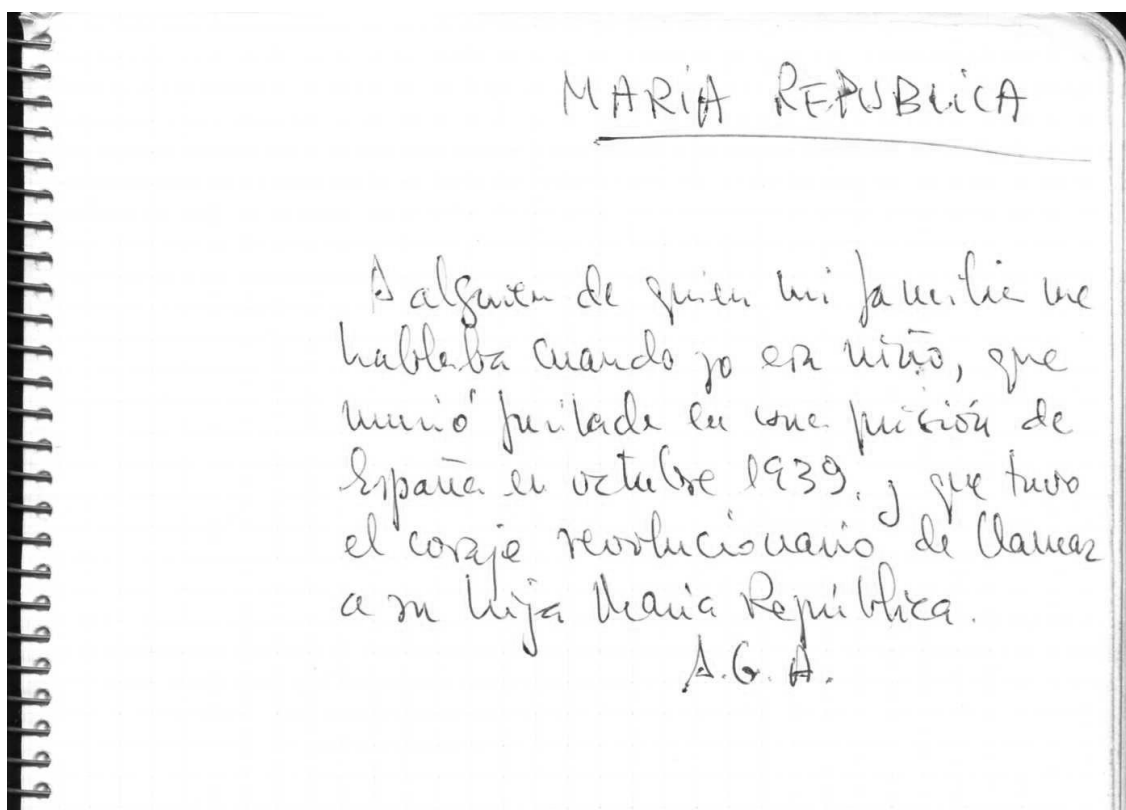 MARIA REPUBLICA
A alguien de quien mi familia me
hablaba cuando yo era niño, que
murió fusilada en una prisión de
España en octubre 1939, y que tuvo
el coraje revolucionario de llamar
a su hija María República.
A. G. A.